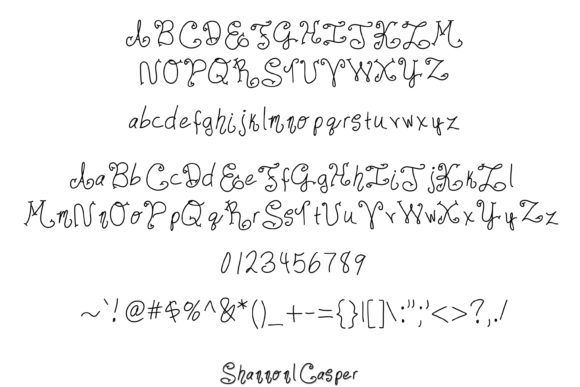 ABCDEFGHIJKLM
NOPQRSTUVWXYZ
abcdefghijklmnopqrstuvwxyz
AaBbCcDdEeFfGgHhIiJjKkLl
MmNnOoPpQqRrSsTtUuVvWwXxYyZz
0123456789
~`!@#$%^&*()_+-={}|[]\:";'<>?,./
Shannon Casper